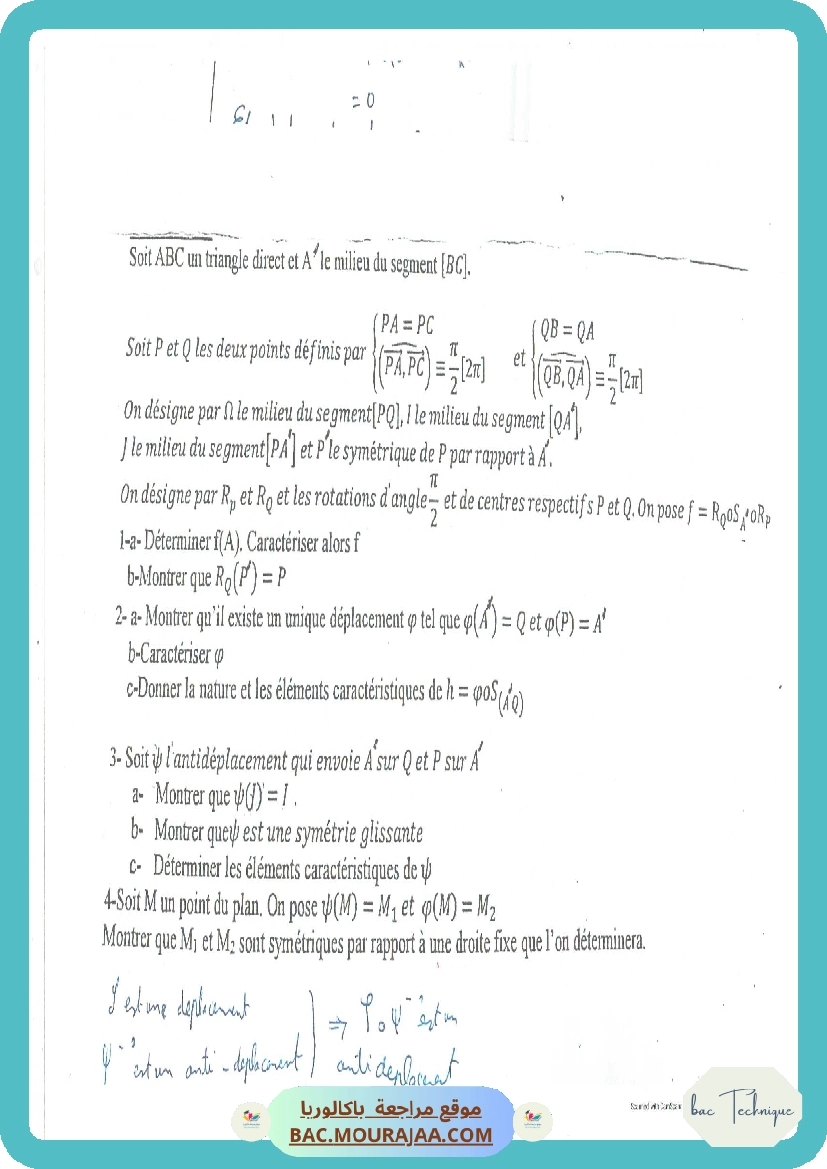 = 0
Soit ABC un triangle direct et A' le milieu du segment [BC].
Soit P et Q les deux points définis par { PA = PC (PA, PC) ≡ π/2 [2π] et { QB = QA (QB, QA) ≡ π/2 [2π]
On désigne par Ω le milieu du segment[PQ], I le milieu du segment [QA'],
J le milieu du segment[PA'] et P'le symétrique de P par rapport à A'.
On désigne par Rp et RQ et les rotations d'angle π/2 et de centres respectifs P et Q. On pose f = RQoSA'oRP
1-a- Déterminer f(A). Caractériser alors f
b-Montrer que RQ(P') = P
2- a- Montrer qu'il existe un unique déplacement φ tel que φ(A') = Q et φ(P) = A'
b-Caractériser φ
c-Donner la nature et les éléments caractéristiques de h = φoS(A'Q)
3- Soit ψ l'antidéplacement qui envoie A'sur Q et P sur A'
a- Montrer que ψ(J) = I .
b- Montrer queψ est une symétrie glissante
c- Déterminer les éléments caractéristiques de ψ
4-Soit M un point du plan. On pose ψ(M) = M1 et φ(M) = M2
Montrer que M1 et M2 sont symétriques par rapport à une droite fixe que l'on déterminera.
φ est une deplacement
ψ⁻¹ est un anti-deplacement
⇒ φoψ⁻¹ est un
antideplacement
Scanned with CamScan
bac Technique
موقع مراجعة باكالوريا
BAC.MOURAJAA.COM